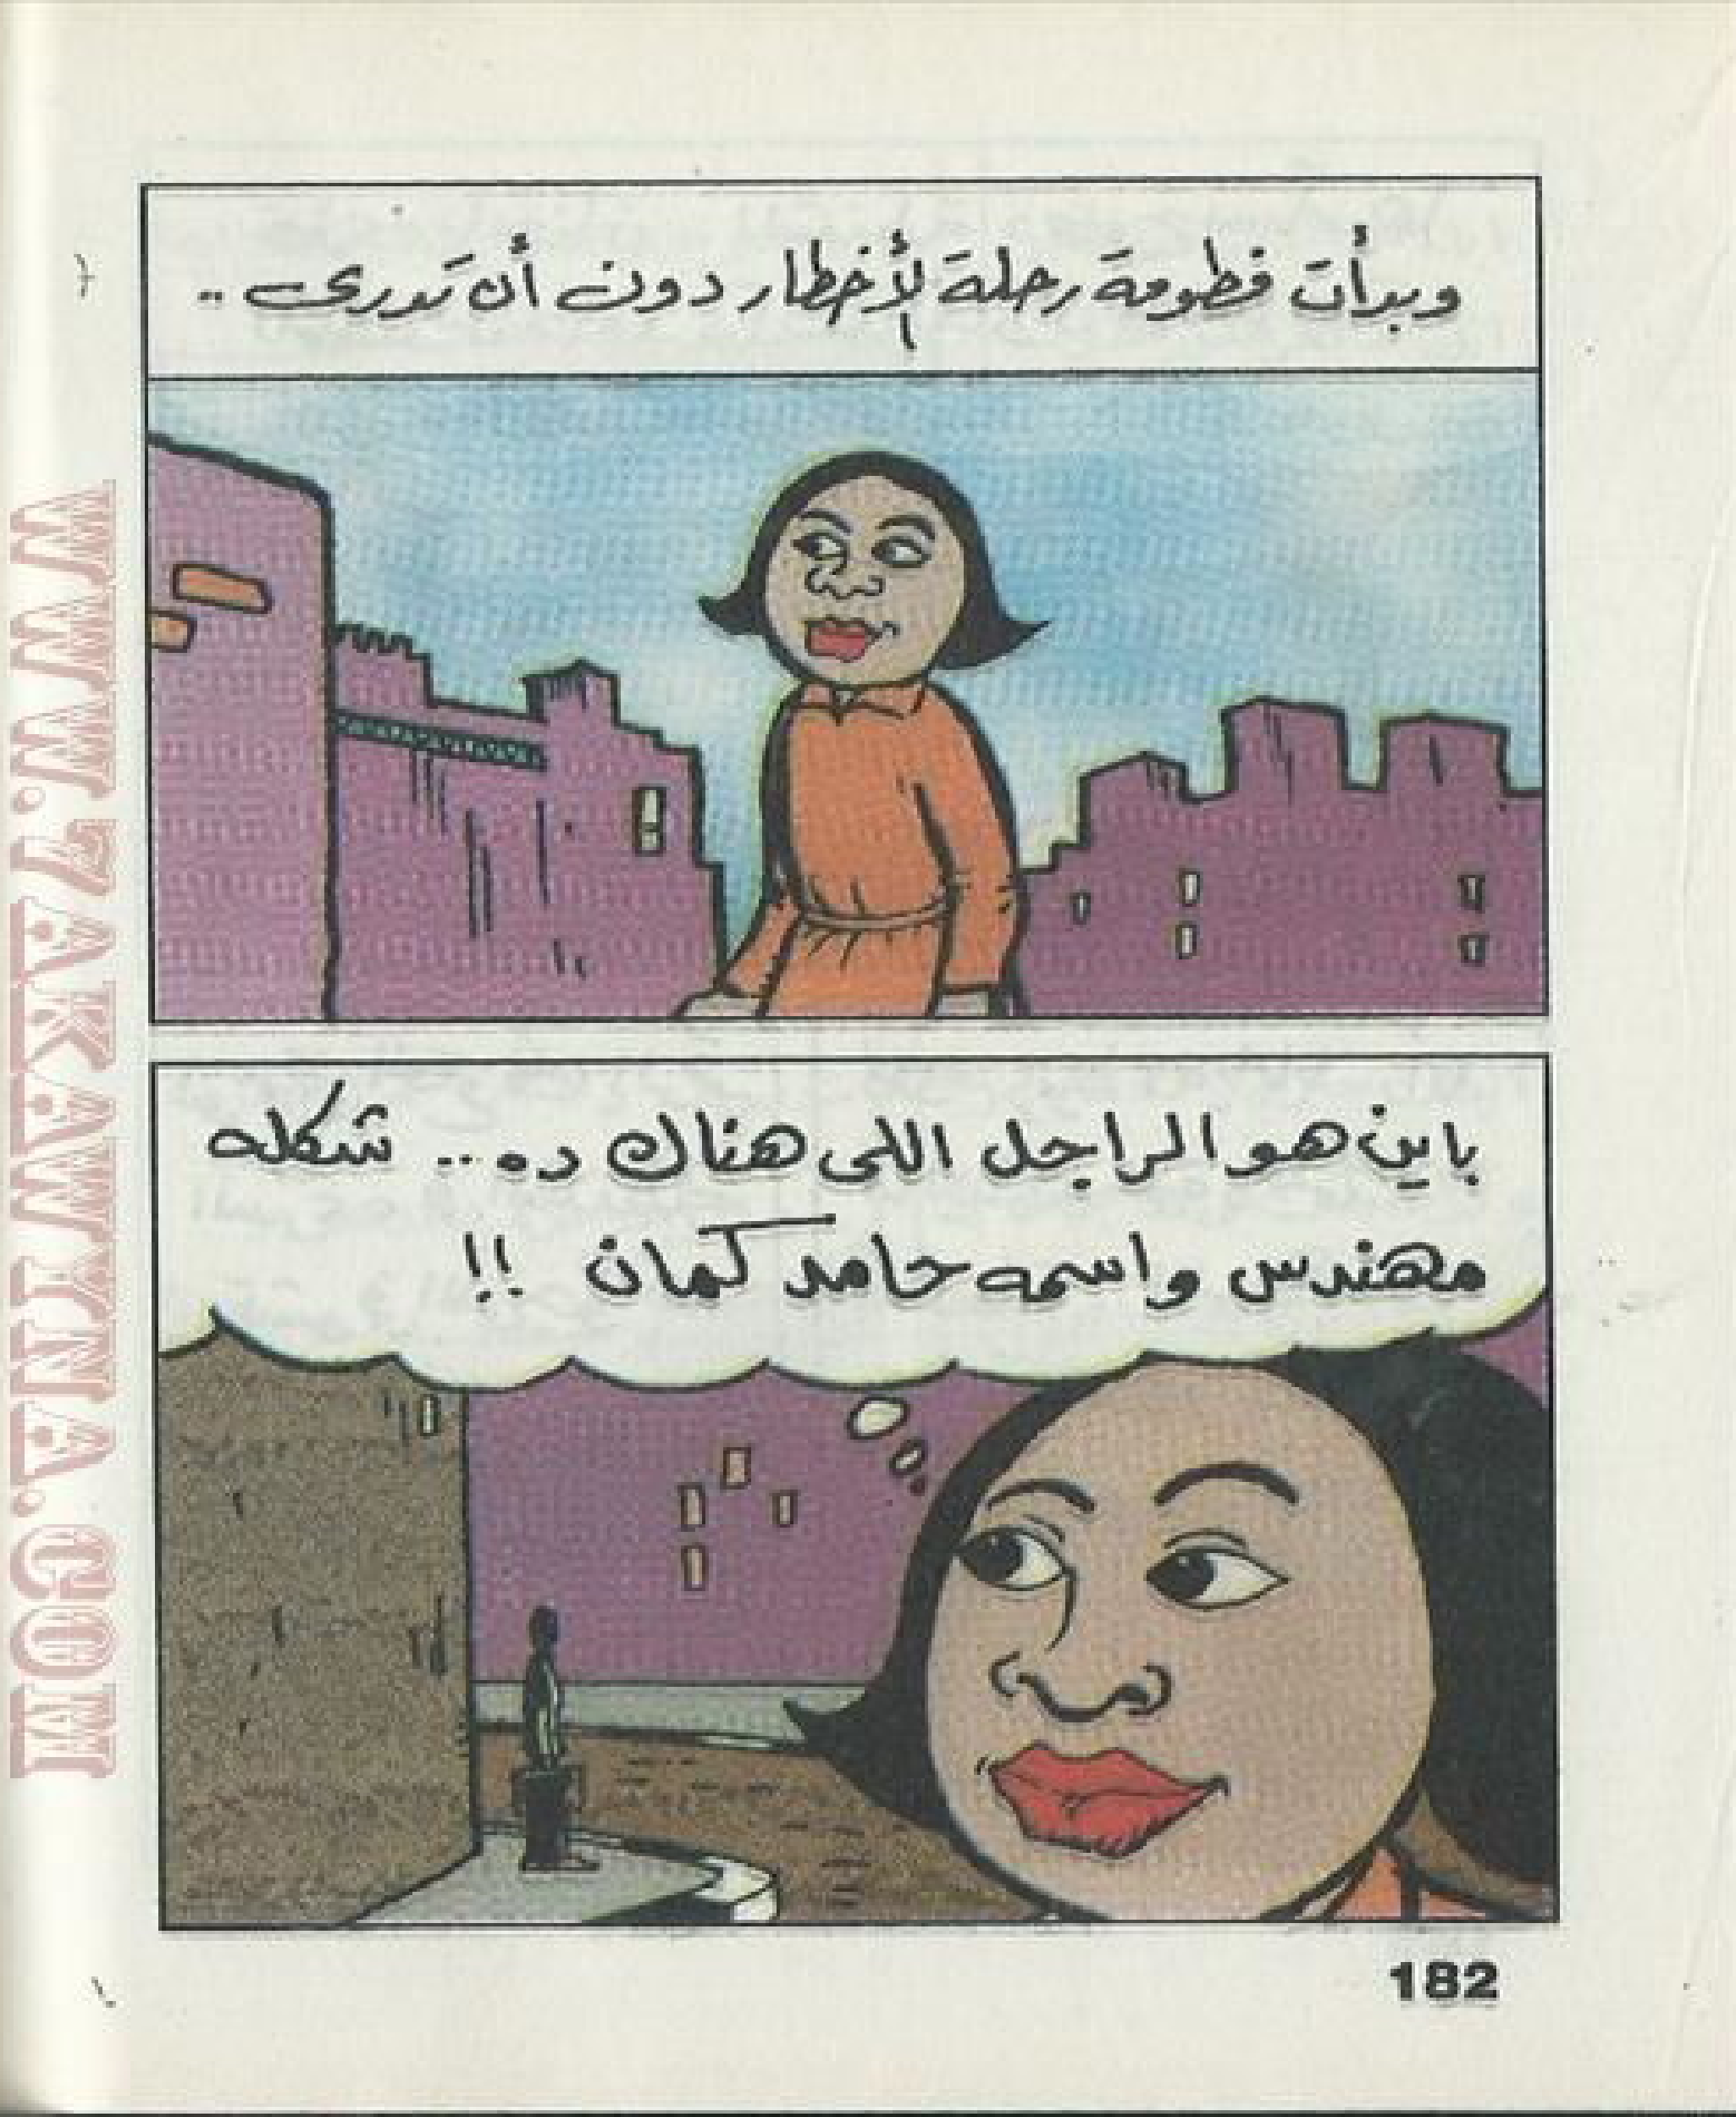 وبدأت فطومة رحلة الأخطار دون أن تدرى ..
باين هو الراجل اللى هناك ده ... شكله
مهندس واسمه حامد كمان !!
182
WWW.7AKAWINA.COM